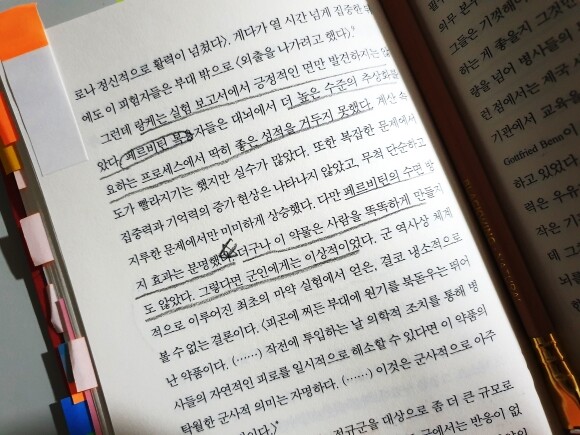 로나 정신적으로 활력이 넘쳤다). 게다가 열 시간 넘게 집중한
에도 이 피험자들은 부대 밖으로 〈외출을 나가려고 했다〉.
그런데 랑케는 실험 보고서에서 긍정적인 면만 발견하지는
았다. 페르비틴 복용자들은 대뇌에서 더 높은 수준의 추상화를
요하는 프로세스에서 딱히 좋은 성적을 거두지 못했다. 계산 속
도가 빨라지기는 했지만 실수가 많았다. 또한 복잡한 문제에서
집중력과 기억력의 증가 현상은 나타나지 않았고, 무척 단순하고
지루한 문제에서만 미미하게 상승했다. 다만 페르비틴의 수면 방
지 효과는 분명했다. 더구나 이 약물은 사람을 똑똑하게 만들지
도 않았다. 그렇다면 군인에게는 이상적이었다. 군 역사상 체계
적으로 이루어진 최초의 마약 실험에서 얻은, 결코 냉소적으로
볼 수 없는 결론이다. 〈피곤에 찌든 부대에 원기를 북돋우는 뛰어
난 약품이다. (……) 작전에 투입하는 날 의학적 조치를 통해 병
사들의 자연적인 피로를 일시적으로 해소할 수 있다면 이 약품의
탁월한 군사적 의미는 자명하다. (……) 이것은 군사적으로 아주
정규군을 대상으로 좀 더 큰 규모로
군에서는 반응이 없
의무 본
그들은 기꺼이
하는 게 좋을지 그것만
량을 넘어 병사들의
런 점에서는 제국
기관에서 교육을
Gottfried Benn이
하고 있었다
력은 우유
작은 기